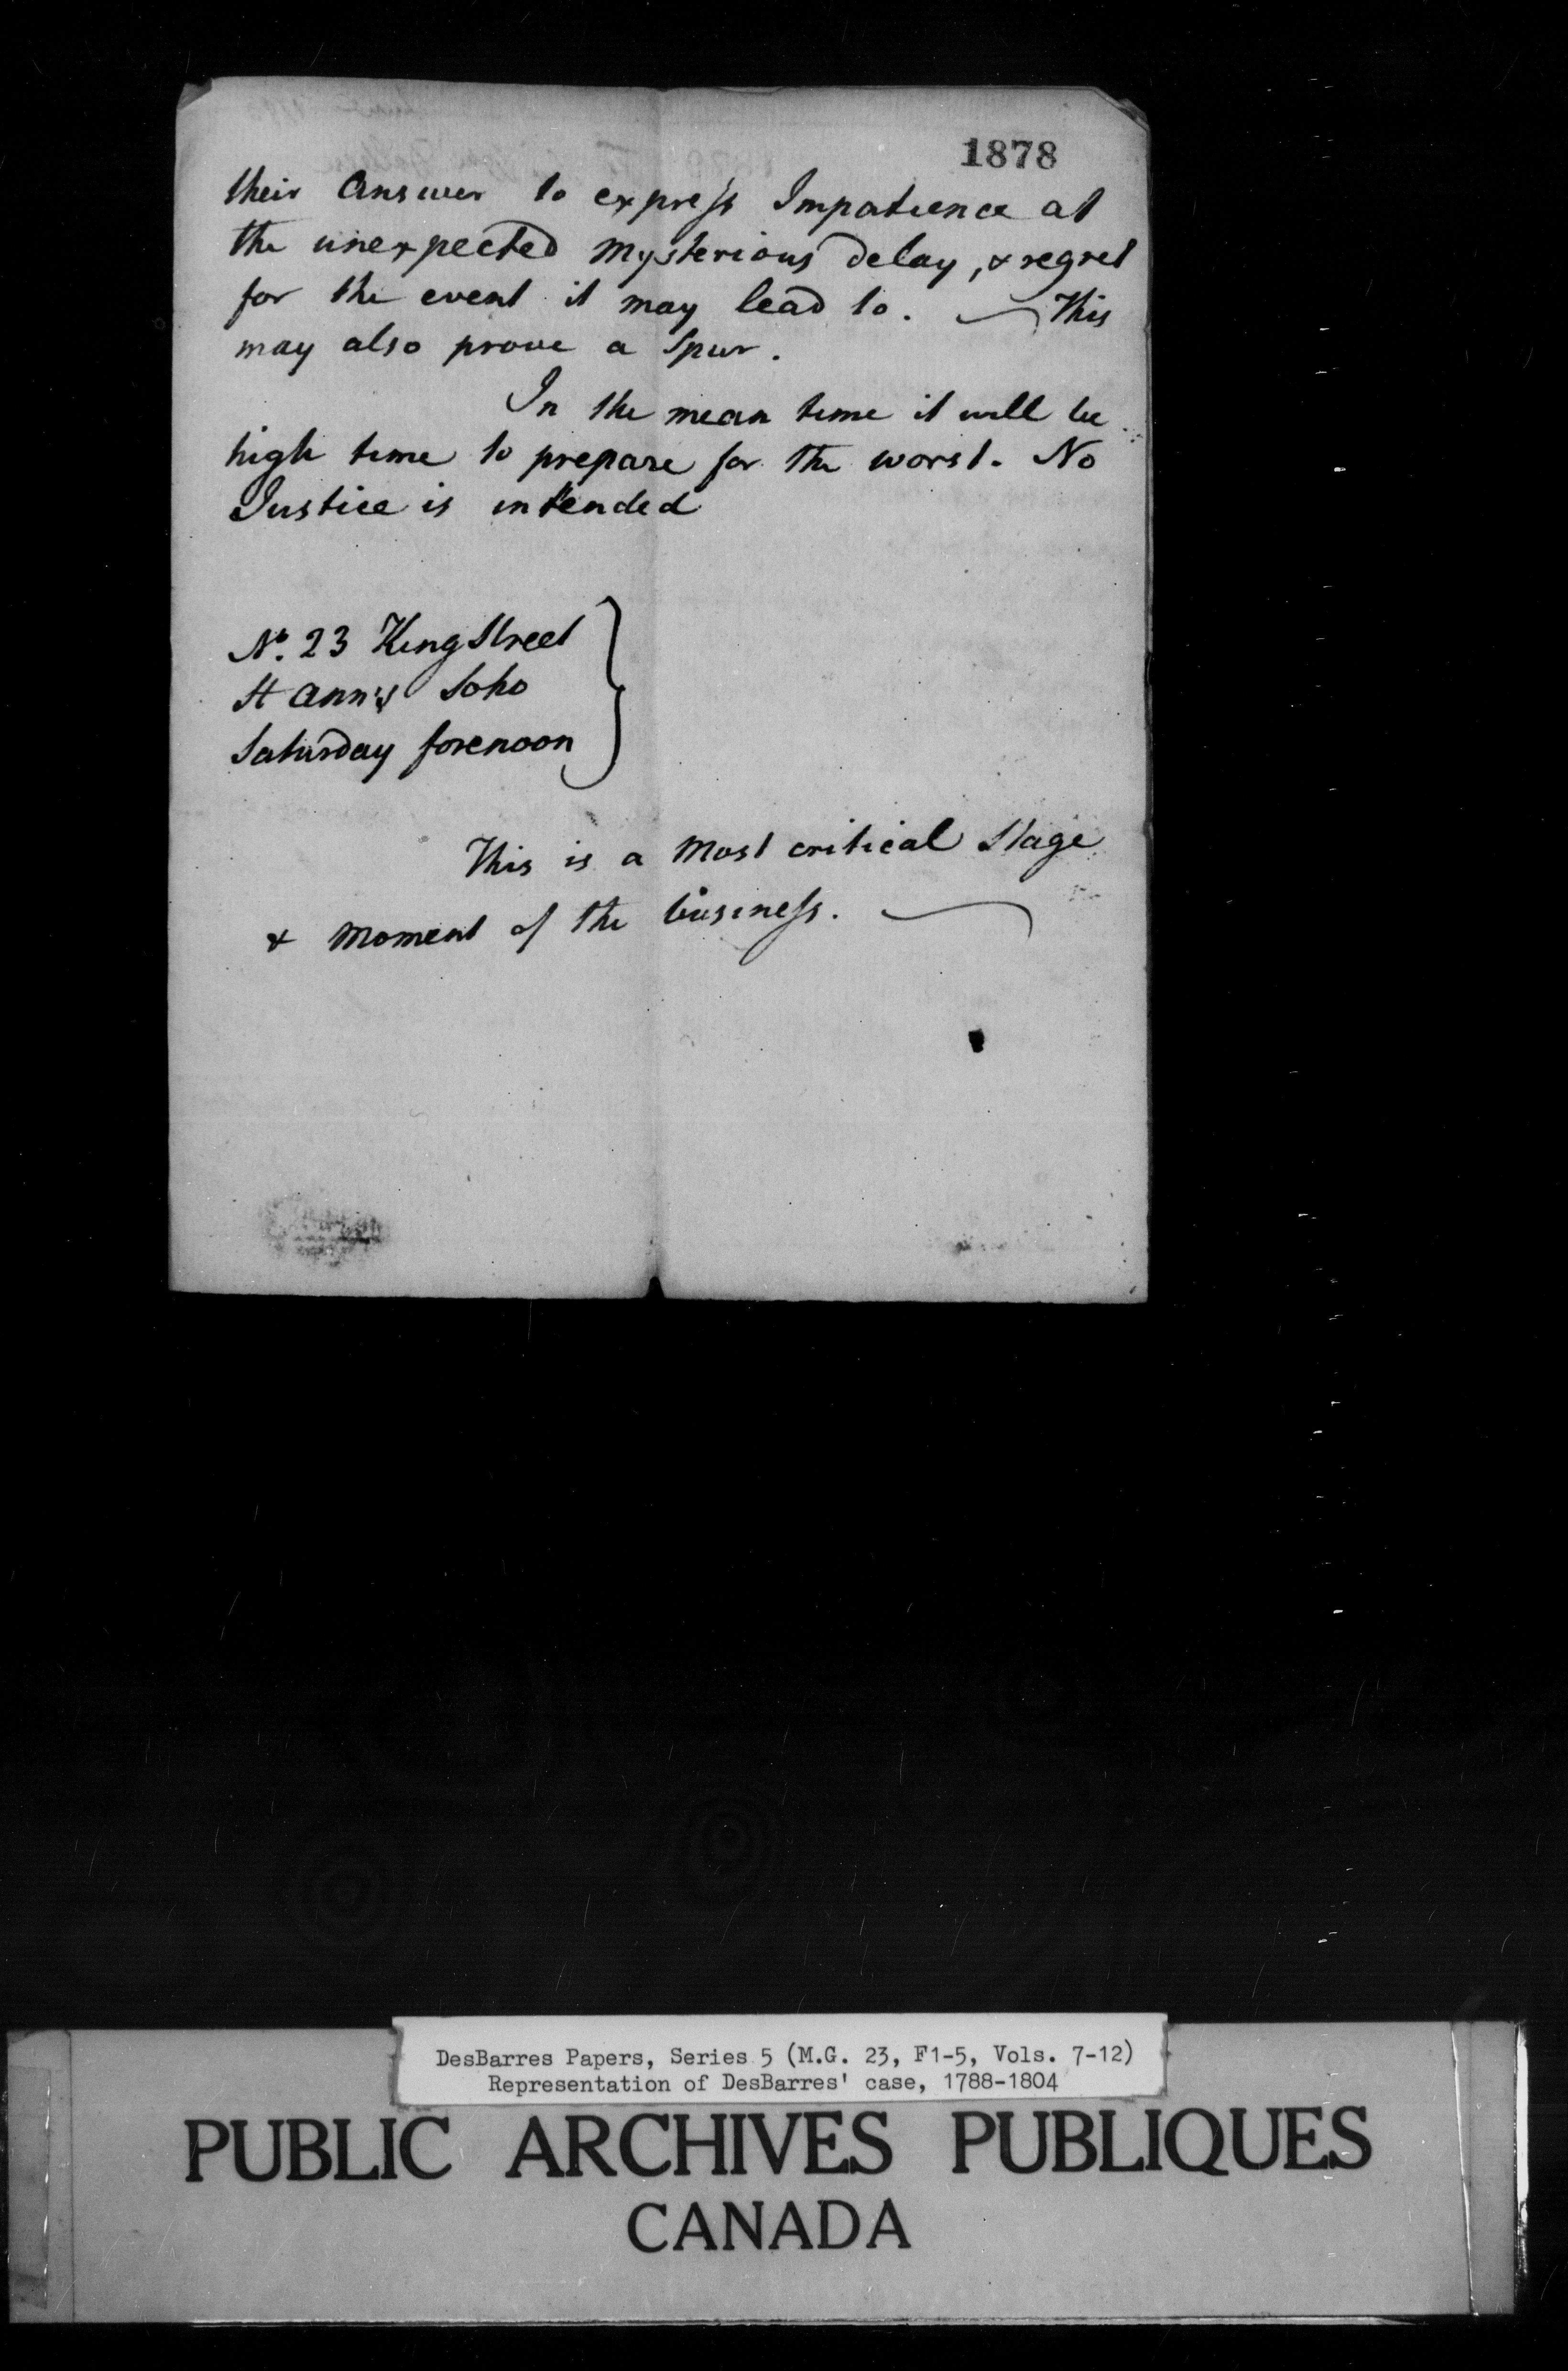 1878
their Answer to express Impatience at
the unexpected Mysterious delay, & regret
for the event it may lead to. — This
may also prove a Spur.
In the mean time it will be
high time to prepare for the worst. No
Justice is intended
No. 23 King Street
St Ann's Soho
Saturday forenoon
This is a Most critical Stage
& Moment of the business. —
DesBarres Papers, Series 5 (M.G. 23, F1-5, Vols. 7-12)
Representation of DesBarres' case, 1788-1804
PUBLIC ARCHIVES PUBLIQUES
CANADA